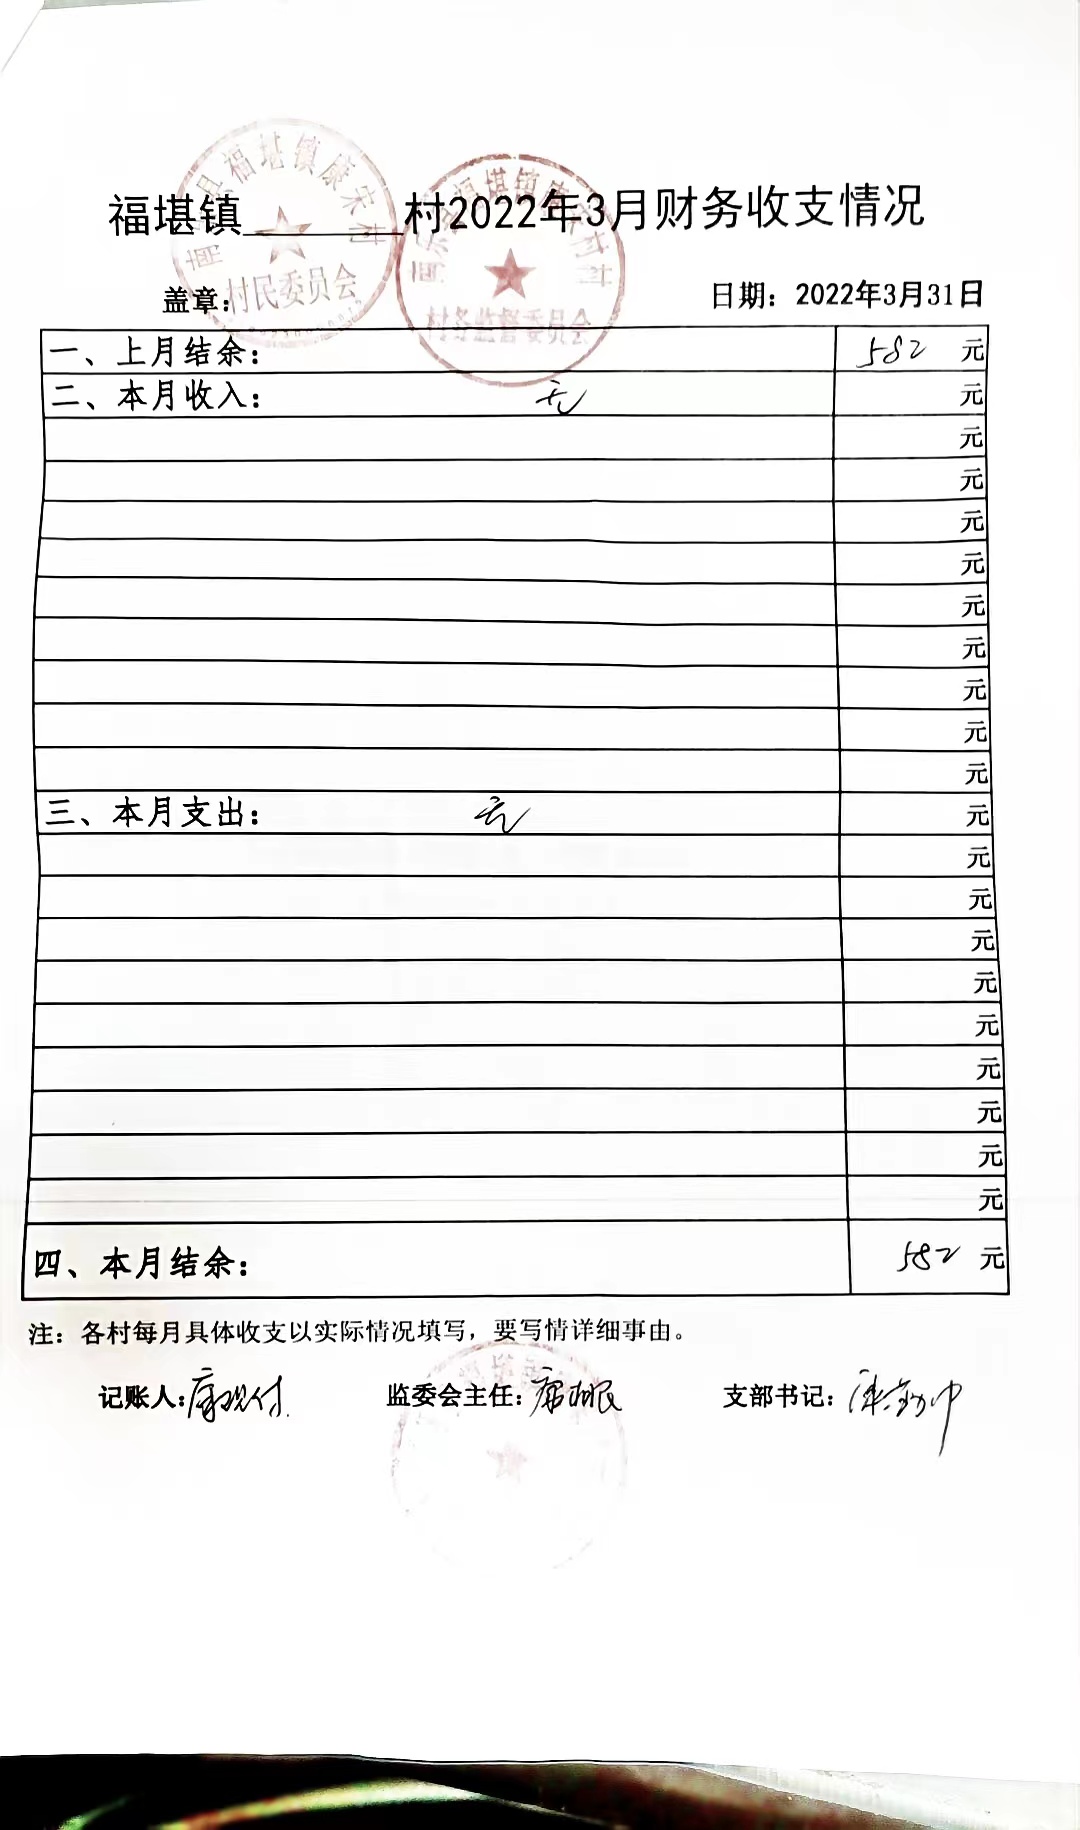 福堪镇________村2022年3月财务收支情况
县福堪镇康宋村
村民委员会
福堪镇
村务监督委员会
盖章:
日期: 2022年3月31日
一、上月结余: 582 元
二、本月收入: 无 元
元
元
元
元
元
元
元
元
元
三、本月支出: 无 元
元
元
元
元
元
元
元
元
元
四、本月结余: 582 元
注: 各村每月具体收支以实际情况填写, 要写情详细事由。
记账人: 监委会主任: 支部书记: